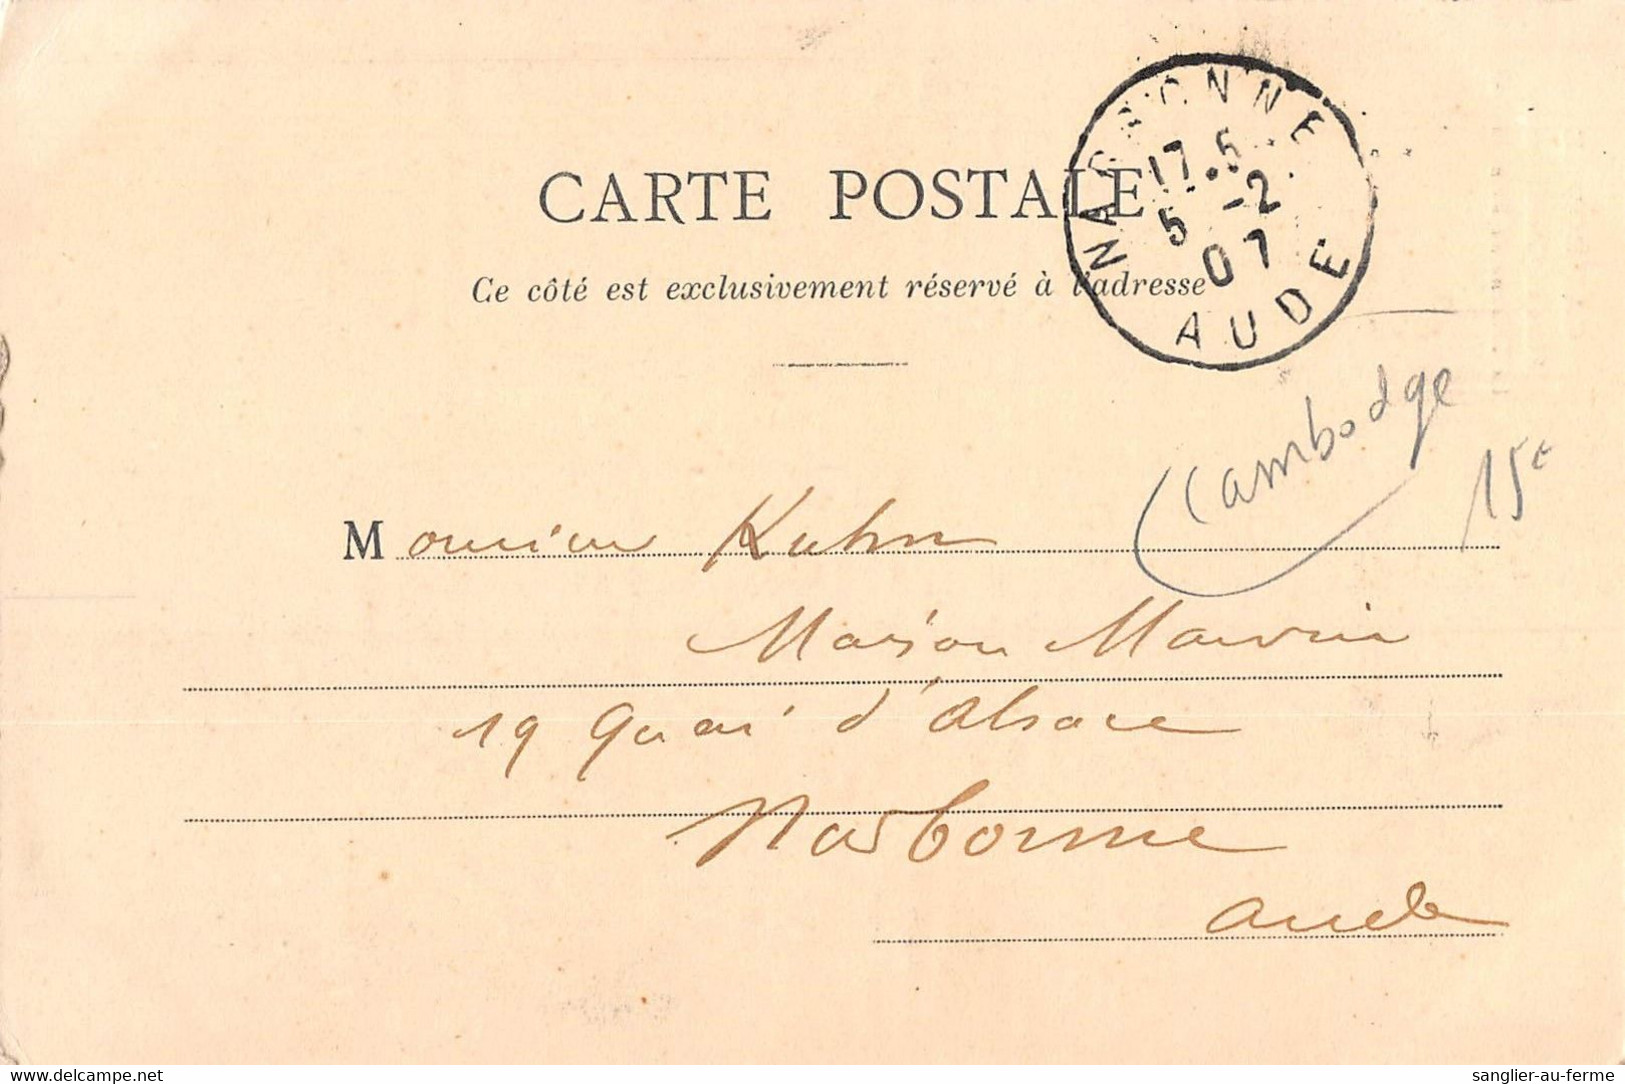 NARBONNE
17.5
5 -2
07
AUDE
CARTE POSTALE
Ce côté est exclusivement réservé à l'adresse
Cambodge
15€
Monsieur Kuhn
Maison Mauvin
19 Quai d'Alsace
Narbonne
Aude
www.delcampe.net
sanglier-au-ferme